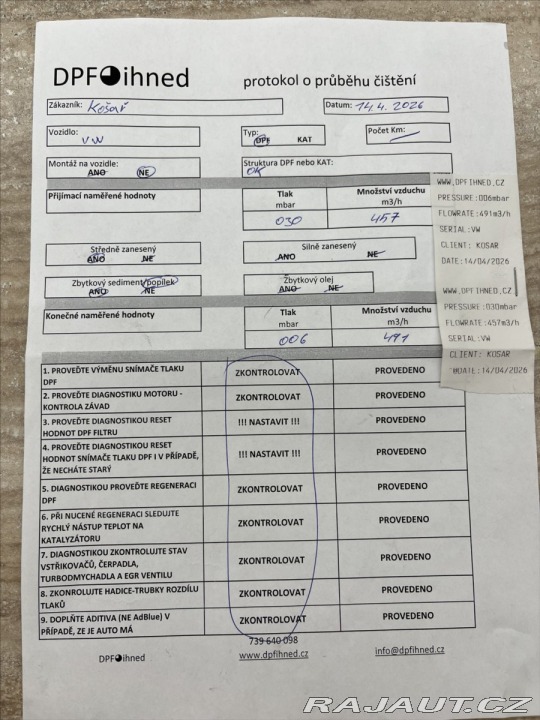 DPF ihned
protokol o průběhu čištění
Zákazník: Košař
Datum: 14.4.2026
Vozidlo: VW
Typ: DPF KAT
Počet Km: –
Montáž na vozidle: ANO NE
Struktura DPF nebo KAT: OK
Přijímací naměřené hodnoty
Tlak
mbar
Množství vzduchu
m3/h
030
457
Středně zanesený
ANO NE
Silně zanesený
ANO NE
Zbytkový sediment/popílek
ANO NE
Zbytkový olej
ANO NE
Konečné naměřené hodnoty
Tlak
mbar
Množství vzduchu
m3/h
006
491
WWW.DPFIHNED.CZ
PRESSURE:006mbar
FLOWRATE:491m3/h
SERIAL:VW
CLIENT: KOSAR
DATE:14/04/2026
WWW.DPFIHNED.CZ
PRESSURE:030mbar
FLOWRATE:457m3/h
SERIAL:VW
CLIENT: KOSAR
DATE:14/04/2026
1. PROVEĎTE VÝMĚNU SNÍMAČE TLAKU
DPF
ZKONTROLOVAT
PROVEDENO
2. PROVEĎTE DIAGNOSTIKU MOTORU -
KONTROLA ZÁVAD
ZKONTROLOVAT
PROVEDENO
3. PROVEĎTE DIAGNOSTIKOU RESET
HODNOT DPF FILTRU
!!! NASTAVIT !!!
PROVEDENO
4. PROVEĎTE DIAGNOSTIKOU RESET
HODNOT SNÍMAČE TLAKU DPF I V PŘÍPADĚ,
ŽE NECHÁTE STARÝ
!!! NASTAVIT !!!
PROVEDENO
5. DIAGNOSTIKOU PROVEĎTE REGENERACI
DPF
ZKONTROLOVAT
PROVEDENO
6. PŘI NUCENÉ REGENERACI SLEDUJTE
RYCHLÝ NÁSTUP TEPLOT NA
KATALYZÁTORU
ZKONTROLOVAT
PROVEDENO
7. DIAGNOSTIKOU ZKONTROLUJTE STAV
VSTŘIKOVAČŮ, ČERPADLA,
TURBODMYCHADLA A EGR VENTILU
ZKONTROLOVAT
PROVEDENO
8. ZKONROLUJTE HADICE-TRUBKY ROZDÍLU
TLAKŮ
ZKONTROLOVAT
PROVEDENO
9. DOPLŇTE ADITIVA (NE AdBlue) V
PŘÍPADĚ, ZE JE AUTO MÁ
ZKONTROLOVAT
PROVEDENO
DPF ihned
739 640 098
www.dpfihned.cz
info@dpfihned.cz
RAJAUT.CZ